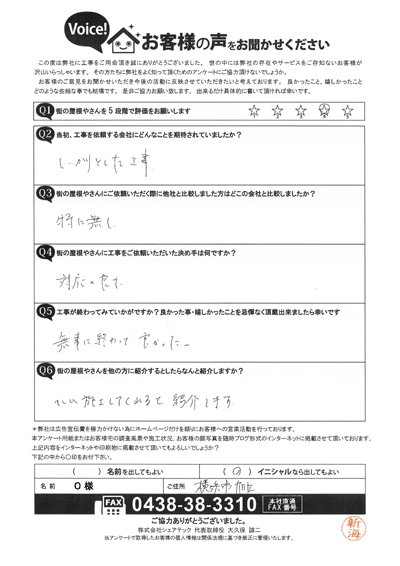 Voice! お客様の声をお聞かせください
この度は弊社に工事をご用命頂き誠にありがとうございました。 世の中には弊社の存在やサービスをご存知ないお客様が
沢山いらっしゃいます。 その方たちに弊社をよく知って頂くためのアンケートにご協力頂けないでしょうか。
お客様のご意見をお聞かせいただき今後の活動に反映させていただきたいと考えております。 良かったこと、嬉しかったこと
どのような些細な事でも結構です。 是非ご協力お願い致します。 出来るだけ具体的に書いて頂ければ幸いです。
Q1 街の屋根やさんを5段階で評価をお願いします ☆ ☆ ☆ ☆ ☆
Q2 当初、工事を依頼する会社にどんなことを期待されていましたか?
しっかりとした工事
Q3 街の屋根やさんにご依頼いただく際に他社と比較しました方はどこの会社と比較しましたか?
特に無し
Q4 街の屋根やさんに工事をご依頼いただいた決め手は何ですか?
対応の
Q5 工事が終わってみていかがですか?良かった事・嬉しかったことを忌憚なく頂戴出来ましたら幸いです
無事に終わって良かったー
Q6 街の屋根やさんを他の方に紹介するとしたらなんと紹介しますか?
施工してくれると紹介します。
*弊社は広告宣伝費を極力かけない為にホームページだけを頼りにお客様への営業活動を行っております。
本アンケート用紙またはお客様宅での調査風景や施工状況、お客様の顔写真を随時ブログ形式のインターネットに掲載させて頂いております。
上記内容をインターネットや印刷物に掲載させて頂いてもよろしいでしょうか?
下記の中から○印をお付下さい。
( )名前を出してもよい (○)イニシャルなら出してもよい
名前 O様 ご住所 横浜市旭区
FAX 0438-38-3310 本社直通 FAX番号
ご協力ありがとうございました。
株式会社シェアテック 代表取締役 大久保 誠二
当アンケートで取得したお客様の個人情報は関係法規に基づき厳正に管理いたします。
新海